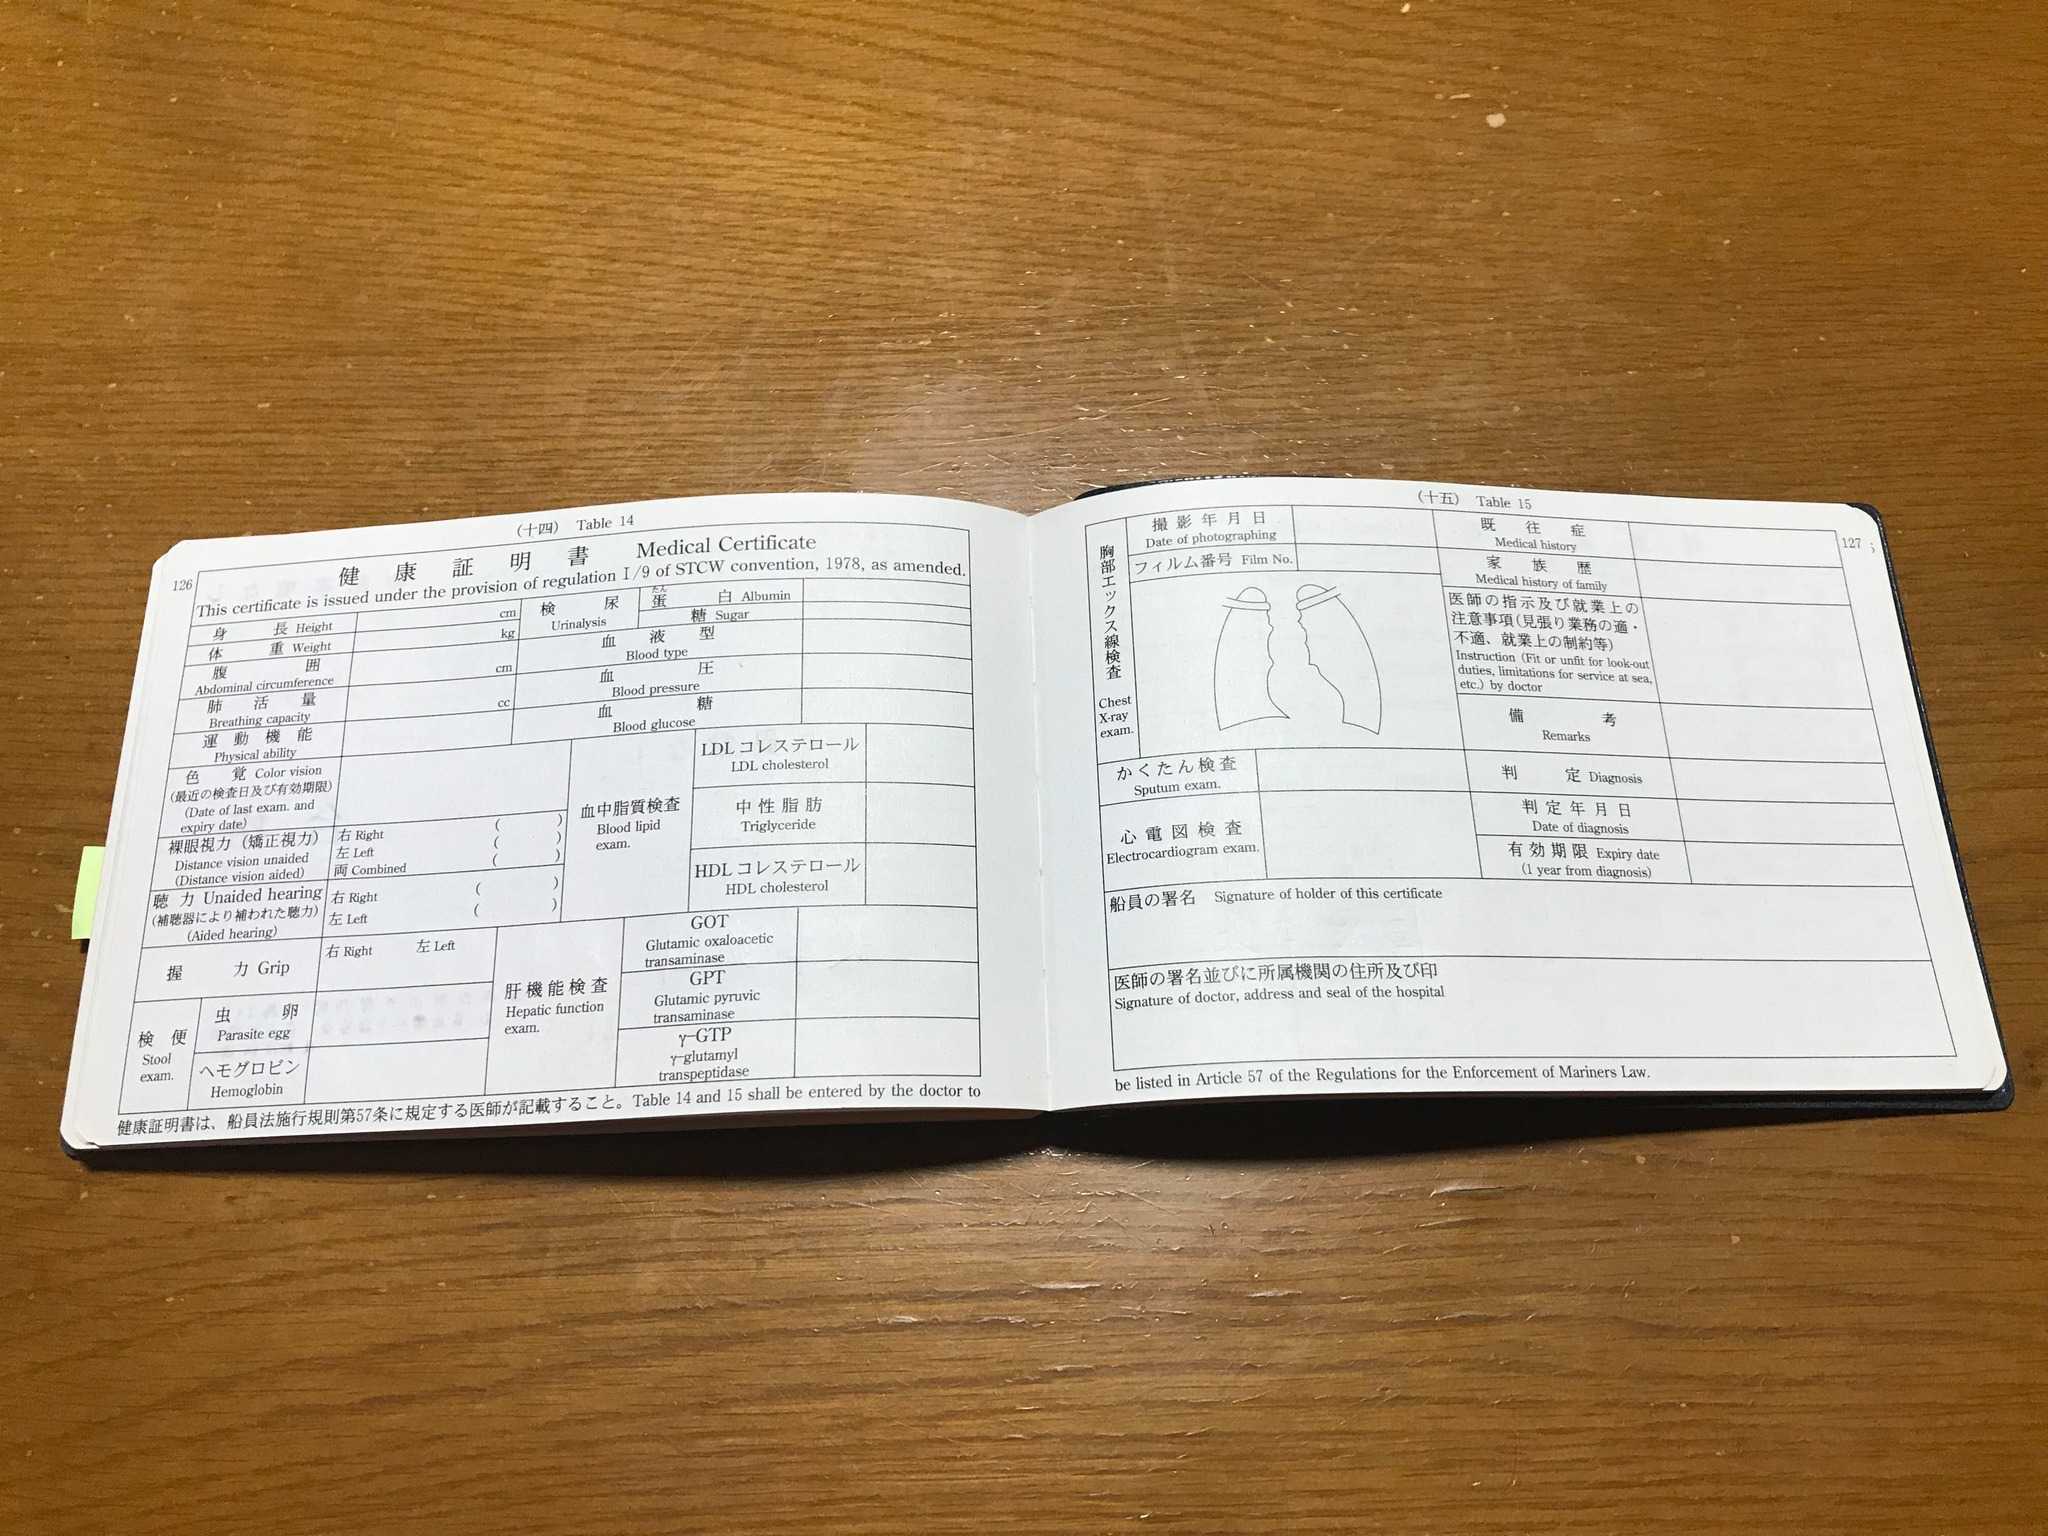 (十四) Table 14
126
健康証明書 Medical Certificate
This certificate is issued under the provision of regulation I/9 of STCW convention, 1978, as amended.
身長 Height
cm
体重 Weight
kg
腹囲
Abdominal circumference
cm
肺活量
Breathing capacity
cc
運動機能
Physical ability
色覚 Color vision
(最近の検査日及び有効期限)
(Date of last exam. and
expiry date)
裸眼視力 (矯正視力)
Distance vision unaided
(Distance vision aided)
右 Right ( )
左 Left ( )
両 Combined ( )
聴力 Unaided hearing
(補聴器により補われた聴力)
(Aided hearing)
右 Right ( )
左 Left ( )
握力 Grip
右 Right 左 Left
検便
Stool
exam.
虫卵
Parasite egg
ヘモグロビン
Hemoglobin
検尿
Urinalysis
たん
蛋白 Albumin
糖 Sugar
血液型
Blood type
血圧
Blood pressure
血糖
Blood glucose
血中脂質検査
Blood lipid
exam.
LDLコレステロール
LDL cholesterol
中性脂肪
Triglyceride
HDLコレステロール
HDL cholesterol
肝機能検査
Hepatic function
exam.
GOT
Glutamic oxaloacetic
transaminase
GPT
Glutamic pyruvic
transaminase
γ-GTP
γ-glutamyl
transpeptidase
健康証明書は、船員法施行規則第57条に規定する医師が記載すること。Table 14 and 15 shall be entered by the doctor to
(十五) Table 15
127
胸部エックス線検査
Chest
X-ray
exam.
撮影年月日
Date of photographing
フィルム番号 Film No.
かくたん検査
Sputum exam.
心電図検査
Electrocardiogram exam.
既往症
Medical history
家族歴
Medical history of family
医師の指示及び就業上の
注意事項(見張り業務の適・
不適、就業上の制約等)
Instruction (Fit or unfit for look-out
duties, limitations for service at sea,
etc.) by doctor
備考
Remarks
判定 Diagnosis
判定年月日
Date of diagnosis
有効期限 Expiry date
(1 year from diagnosis)
船員の署名 Signature of holder of this certificate
医師の署名並びに所属機関の住所及び印
Signature of doctor, address and seal of the hospital
be listed in Article 57 of the Regulations for the Enforcement of Mariners Law.